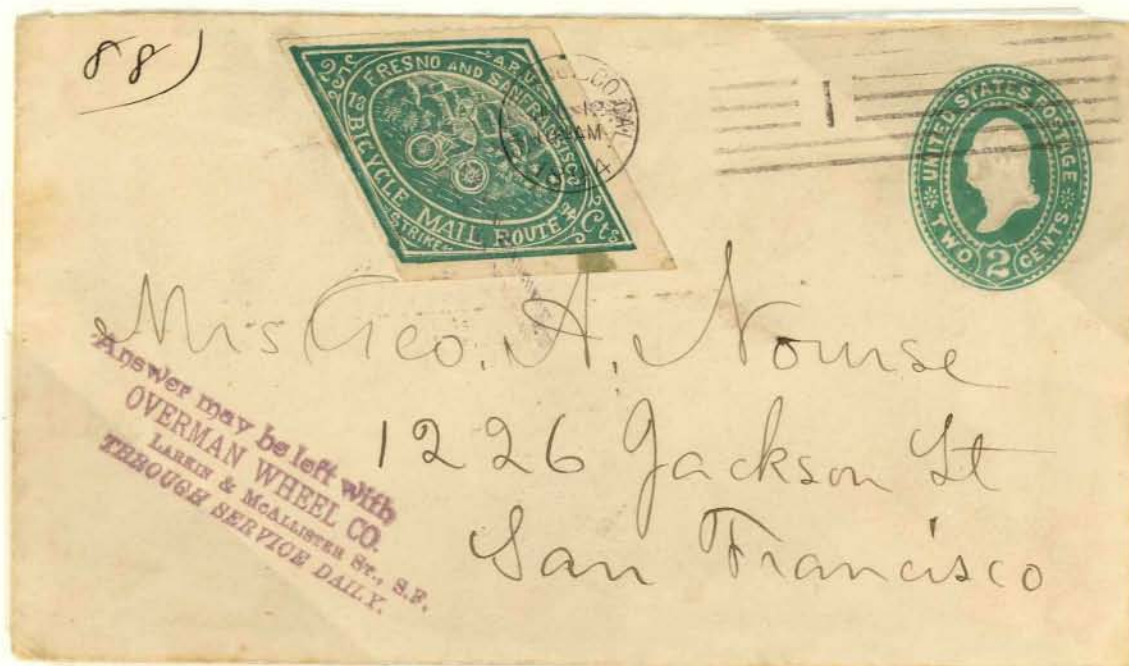 88)
25 Cts
A.R.U.
FRESNO AND SAN FRANSISCO
18 BICYCLE MAIL ROUTE 94
STRIKE
12
AM
1
UNITED STATES POSTAGE
TWO 2 CENTS
Mrs Geo. A. Nourse
1226 Jackson St
San Francisco
Answer may be left with
OVERMAN WHEEL CO.
LARKIN & MCALLISTER ST., S.F.
THROUGH SERVICE DAILY.